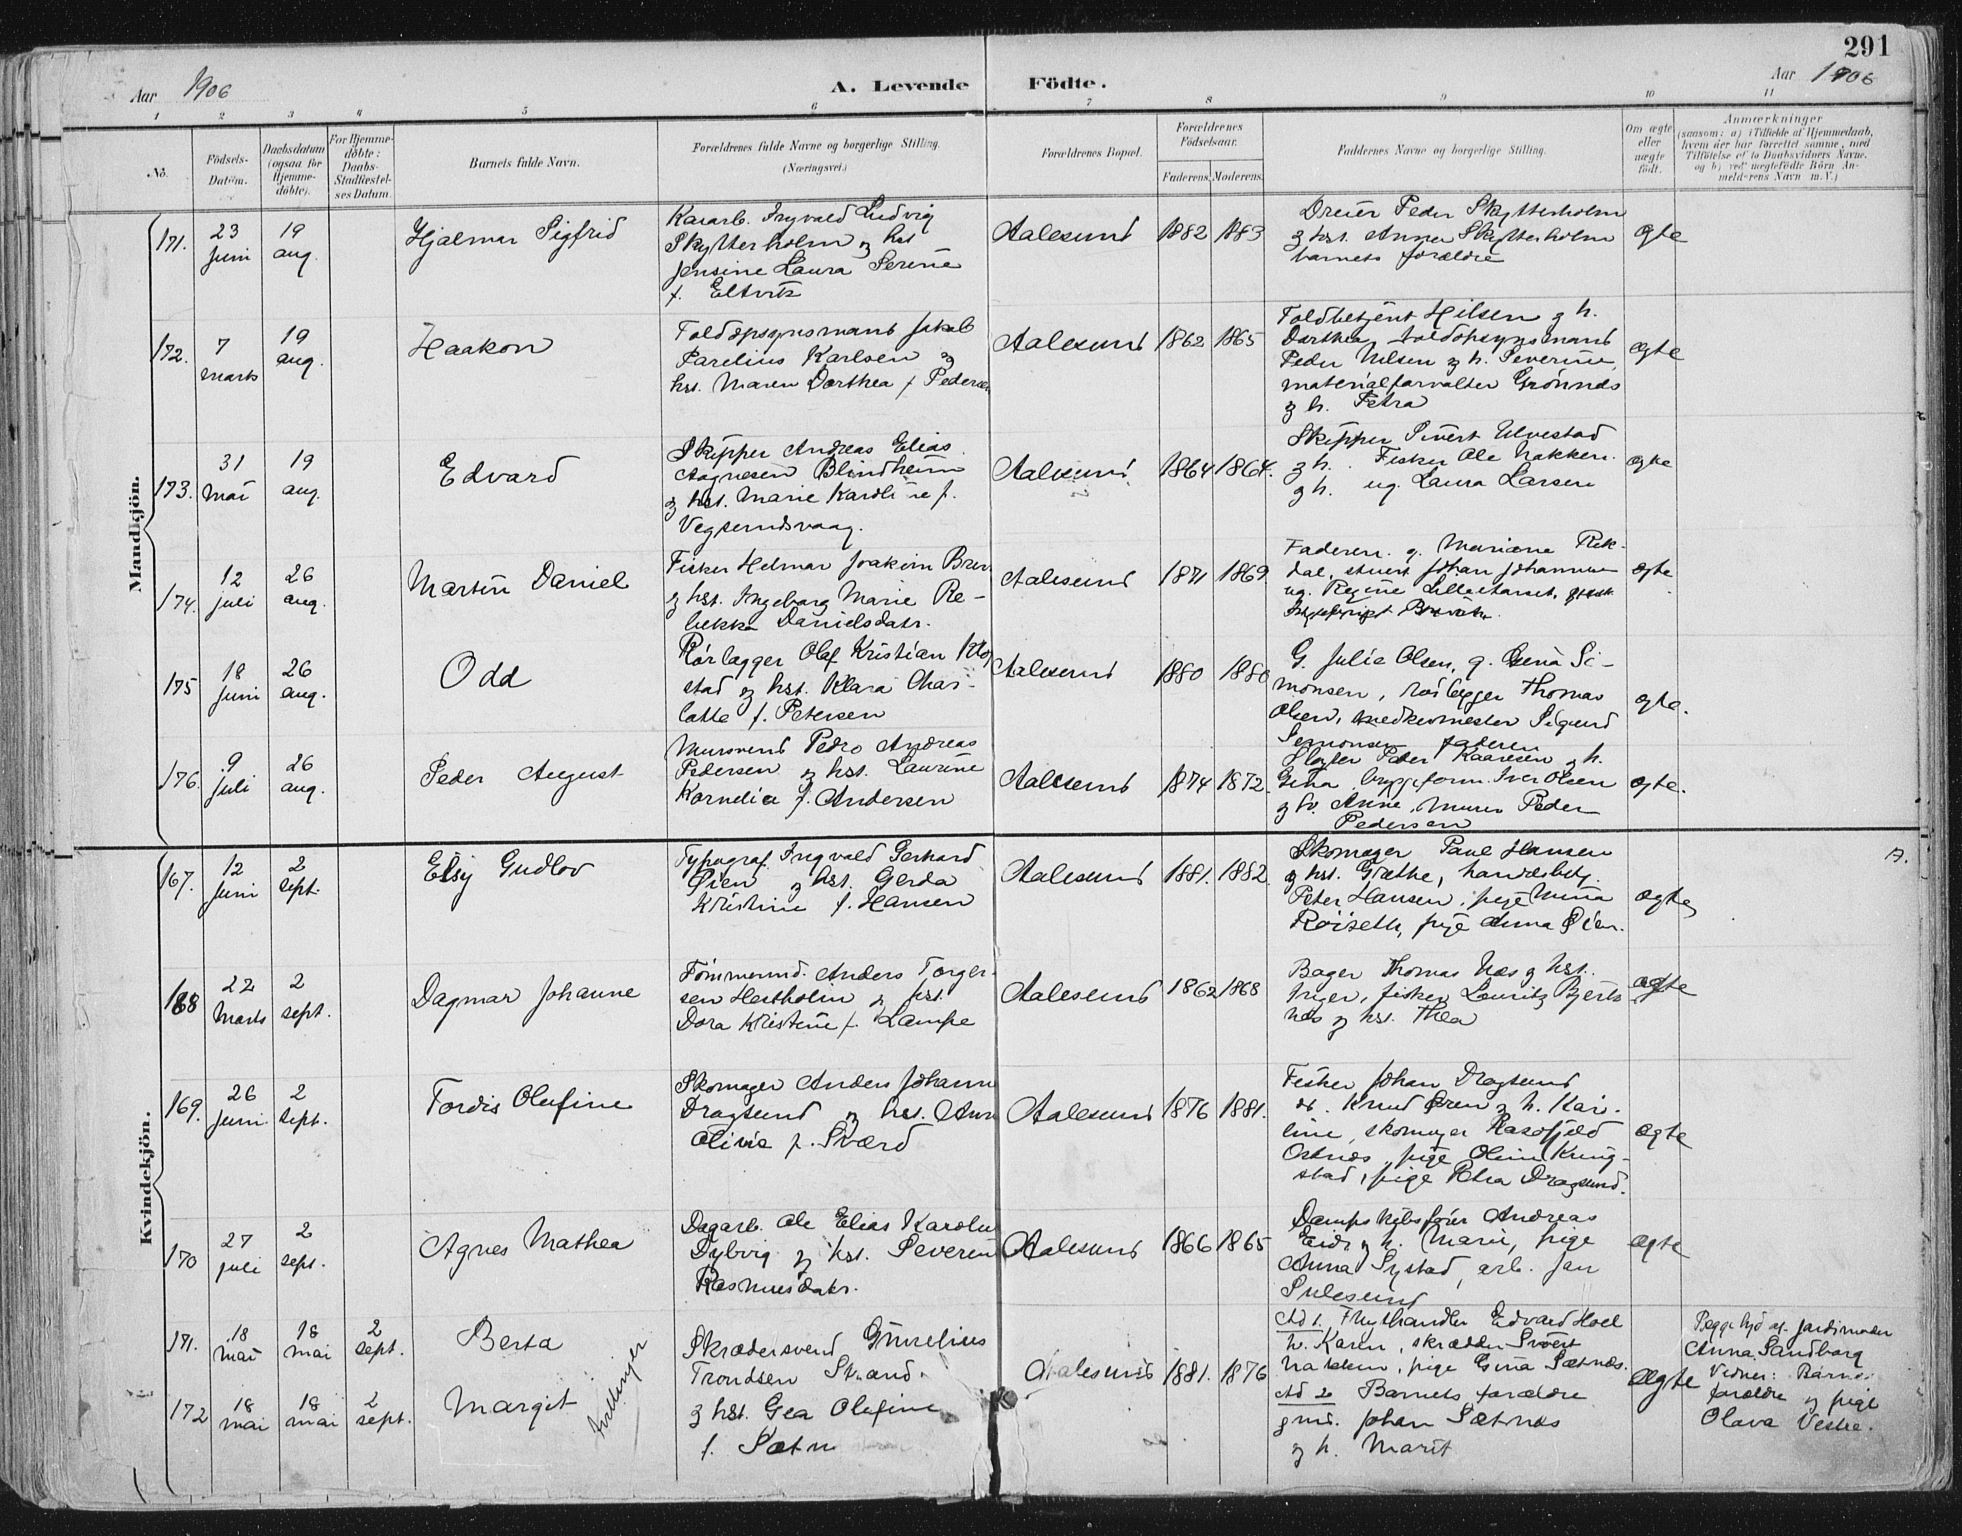 291
Aar 1906
A. Levende Födte.
Aar 1906
1 2 3 4 5 6 7 8 9 10 11
No.
Födsels-Datum.
Daabsdatum (ogsaa for Hjemme-döbte).
For Hjemme-döbte: Daabs-Stadfæstel-ses Datum.
Barnets fulde Navn.
Forældrenes fulde Navne og borgerlige Stilling.
(Næringsvei.)
Forældrenes Bopæl.
Forældrenes Födselsaar.
Faderens. Moderens.
Faddernes Navne og borgerlige Stilling.
Om ægte eller uægte födt.
Anmærkninger
(saasom: a) i Tilfælde af Hjemmedaab,
hvem der har forrettet samme, med
Tilföielse af to Daabsvidners Navne,
og b) ved uægtefödte Börn An-
melderens Navn m. V.)
Mandkjön.
171. 23 juni 19 aug. Hjalmar Sigfrid
Ingvald Ludvig
Skytterholm og hst
Jensine Laura Serine
f. Eltvik
Aalesund 1882 1883
Dreier Peder Skytterholm
og hst. Anna Skytterholm
barnets forældre
ægte
172. 7 marts 19 aug. Haakon
Toldopsynsmand Jakob
Parelius Karlsen og
hst. Maren Dorthea f. Pedersen
Aalesund 1862 1865
Toldbetjent Nilsen og h.
Dorthea, toldopsynsmand
Peder Nilsen og h. Severine,
materialforvalter Grönnes
og h. Petra
ægte
173. 31 mai 19 aug. Edvard
Skipper Andreas Elias
Aagnesen Blindheim
og hst. Marie Karoline f.
Vegsundsvaag.
Aalesund 1864 1864.
Skipper Sivert Ulvestad
og h. Fisker Ole Nakken
og h. ug. Laura Larsen
ægte
174. 12 juli 26 aug. Martin Daniel
Fisker Helmar Joakim
og hst. Ingeborg Marie Re-
bekka Danielsdatr.
Aalesund 1871 1869
Faderen. g. Mariane Rek-
dal, stuert Johan Johannesen
ug. Regine
ægte
175 18 juni 26 aug. Odd
Rörlægger Olaf Kristian
stad og hst. Klara Char-
lotte f. Petersen
Aalesund 1880 1880
G. Julie Olsen, g. Gina Si-
monsen, rörlægger Thomas
Olsen, snedkermester Sigurd
Simonsen faderen
ægte.
176. 9 juli 26 aug. Peder August
Mursvend Pedro Andreas
Pedersen og hst. Laurine
Kornelia f. Andersen
Aalesund 1874 1872.
Peter Kaaresen og h.
Gina, byggeform. Iver Olsen
og h. Anne, murer Peder
Pedersen
ægte.
Kvindekjön.
167. 12 juni 2 sept. Elsy Gudlov
Typograf Ingvald Gerhard
Øien og hst. Gerda
Kristine f. Hansen
Aalesund 1881. 1882.
Skomager Paul Hansen
og hst. Grethe, handelsbetj.
Peter Hansen, pige Mina
Röiseth, pige Anna Øien.
ægte
A.
168 22 marts 2 sept. Dagmar Johanne
Tömmermd. Anders Torger-
sen Hestholm og hst
Dora Kristine f. Lampe
Aalesund 1862 1868
Bager Thomas Næs og hst.
Inger, fisker Lauritz
næs og hst. Thea
ægte
169. 26 juni 2 sept. Tordis Olufine
Skomager Anders Johann
Dragsund og hst. Ane
Olivia f. Sværd
Aalesund 1876 1881.
Fisker Johan Dragsund
Knud Ören og h. Karo-
line, skomager
Ostnæs, pige Oline Kring-
stad, pige Petra Dragsund.
ægte
170 27 juli 2 sept. Agnes Mathea
Dagarb. Ole Elias Karolus
Dybvig og hst. Severine
Rasmusdatr.
Aalesund 1866 1865
Dampskibsförer Andreas
Eide og h. Marie, pige
Anna Systad, arb. Jan
Sulesund
ægte
171. 18 mai 18 mai 2 sept. Berta
172 18 mai 18 mai 2 sept. Margit
tvillinger
Skræddersvend
Trondsen Strand
og hst. Gea Olufine
f. Sætn
Aalesund 1881. 1876
Ad 1. Edvard Hoel
h. Karen, skrædder Sivert
Nakken, pige Gina Sætnæs.
Ad 2 Barnets forældre
gmd. Johan Sætnæs
og h. Marit
Ægte
Begge hjd af jordmoder
Anna Sandborg
Vidner: Barnets
forældre og pige
Olava Vestre.